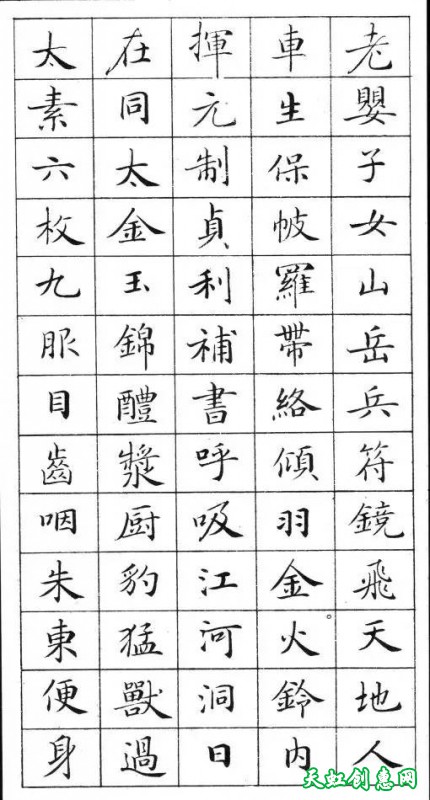 老嬰子女山岳兵符鏡飛天地人
車生保帔羅帶絡傾羽金火鈴内
揮元制貞利補書呼吸江河洞日
在同太金玉錦醴漿厨豹猛獸過
太素六枚九服目齒咽朱東便身
天虹创意网